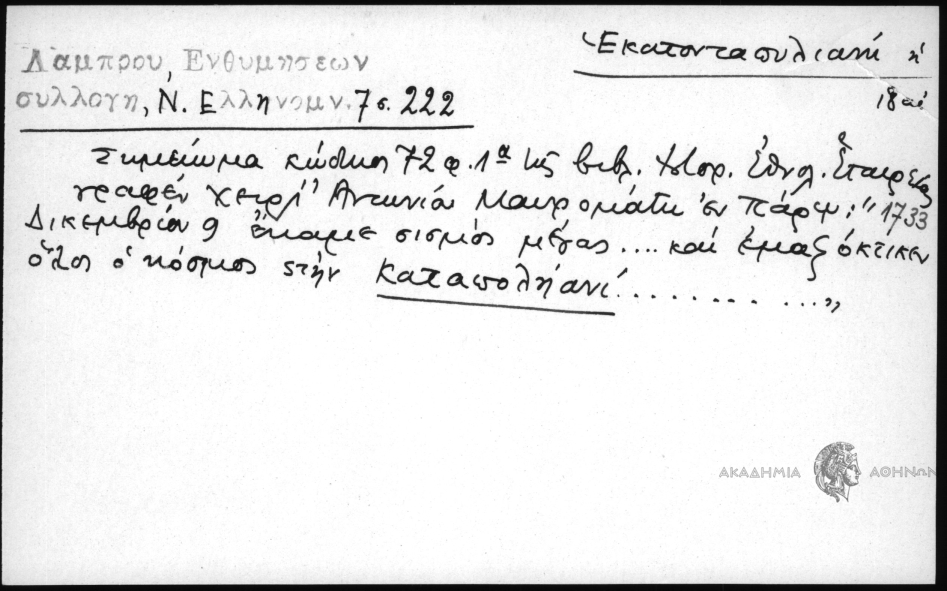 Ἑκατονταπυλιανή ἡ
Λάμπρου, Ενθυμησεων
συλλογη, Ν. Ελληνομν. 7 σ. 222
18 αἰ
Σημείωμα κώδικος 72 φ. 1α τῆς βιβλ. Ἱστορ. Ἐθνολ. Ἑταιρείας
γραφέν χειρί Ἀντωνίου Μαυρομάτη ἐν Πάρῳ: "1733
Δικεμβρίου 9 ἔκαμε σισμός μέγας .... καί ἐμαζόκτικεν
ὅλος ὁ κόσμος στήν Καταπολήανί ........ ... "
ΑΚΑΔΗΜΙΑ ΑΘΗΝΩΝ